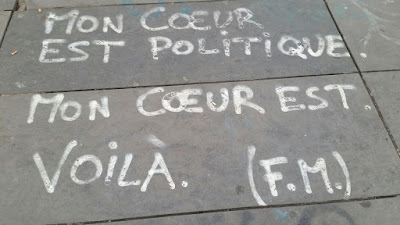 MON CŒUR
EST POLITIQUE.
MON CŒUR EST.
VOILÀ. (F.M.)